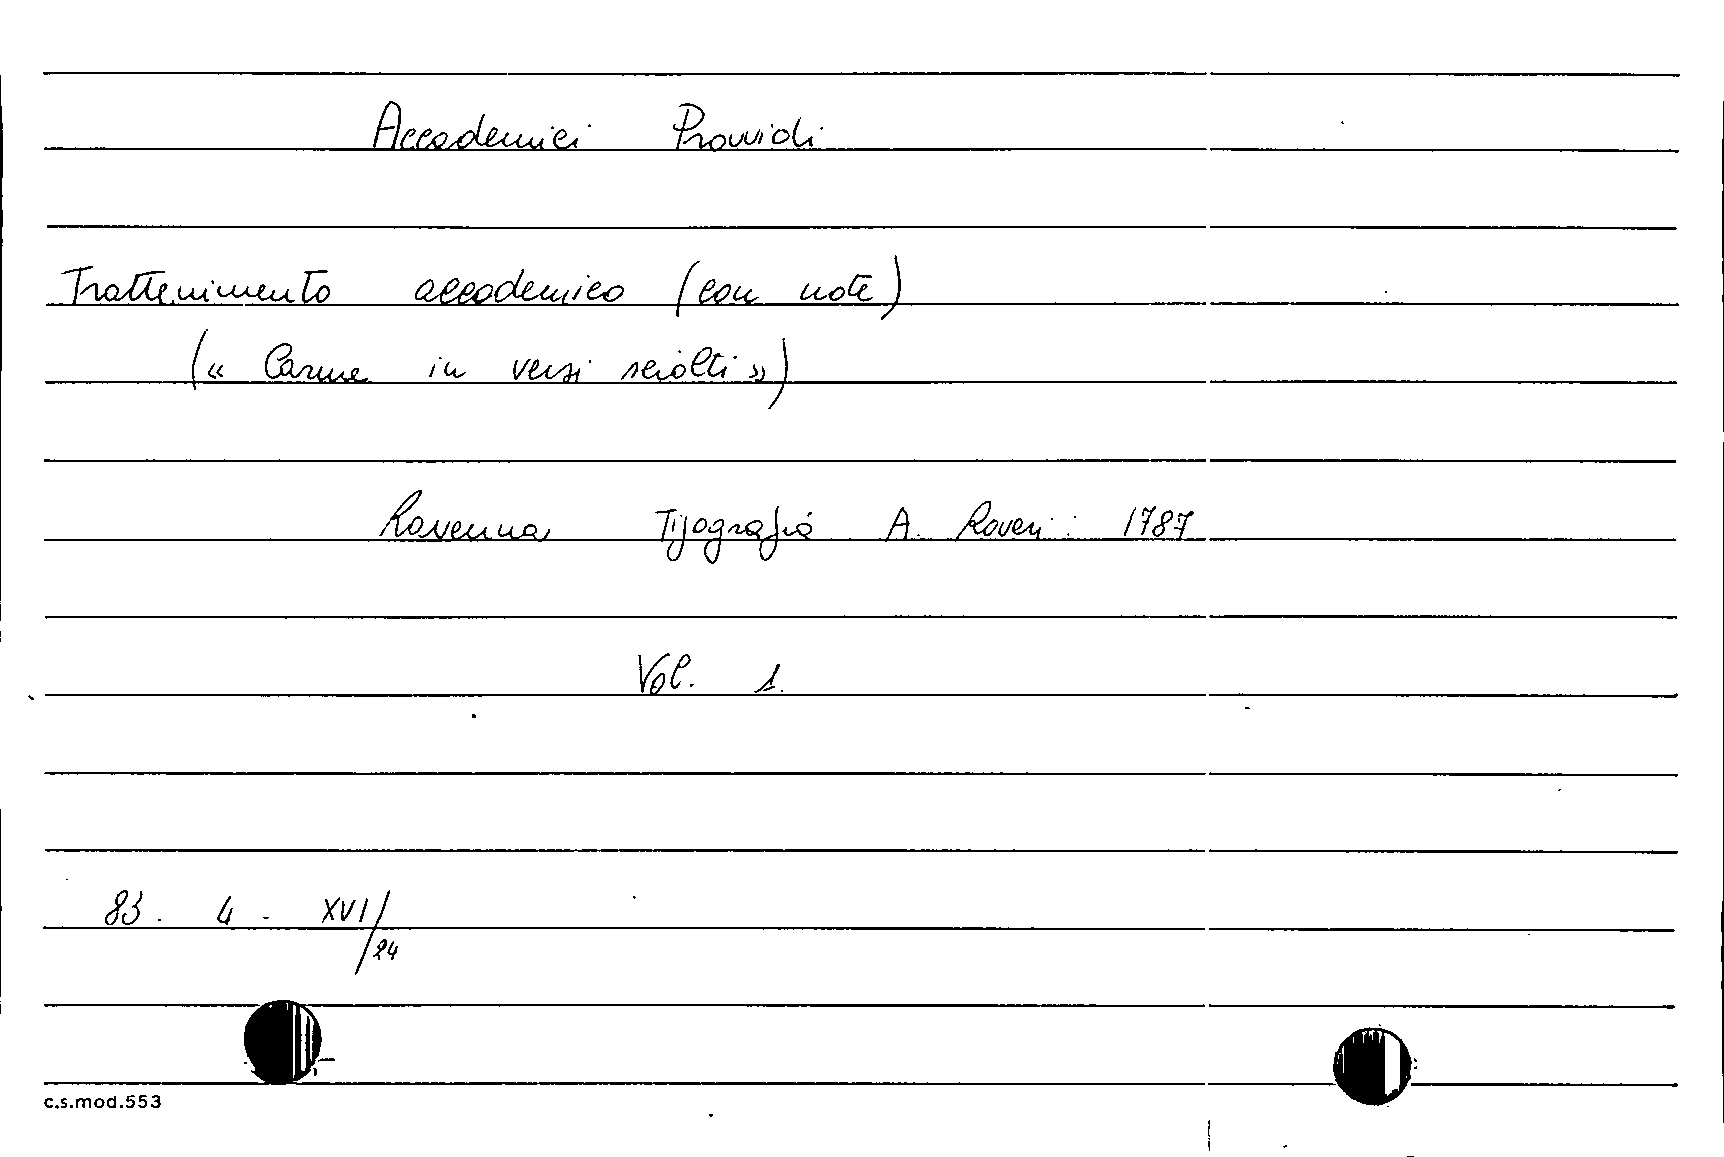 Accademici Provvidi
Trattenimento accademico (con note)
(« Carme in versi sciolti »)
Ravenna Tipografia A. Roveri 1787
Vol. 1.
83. 4. XVI/24
c.s.mod.553